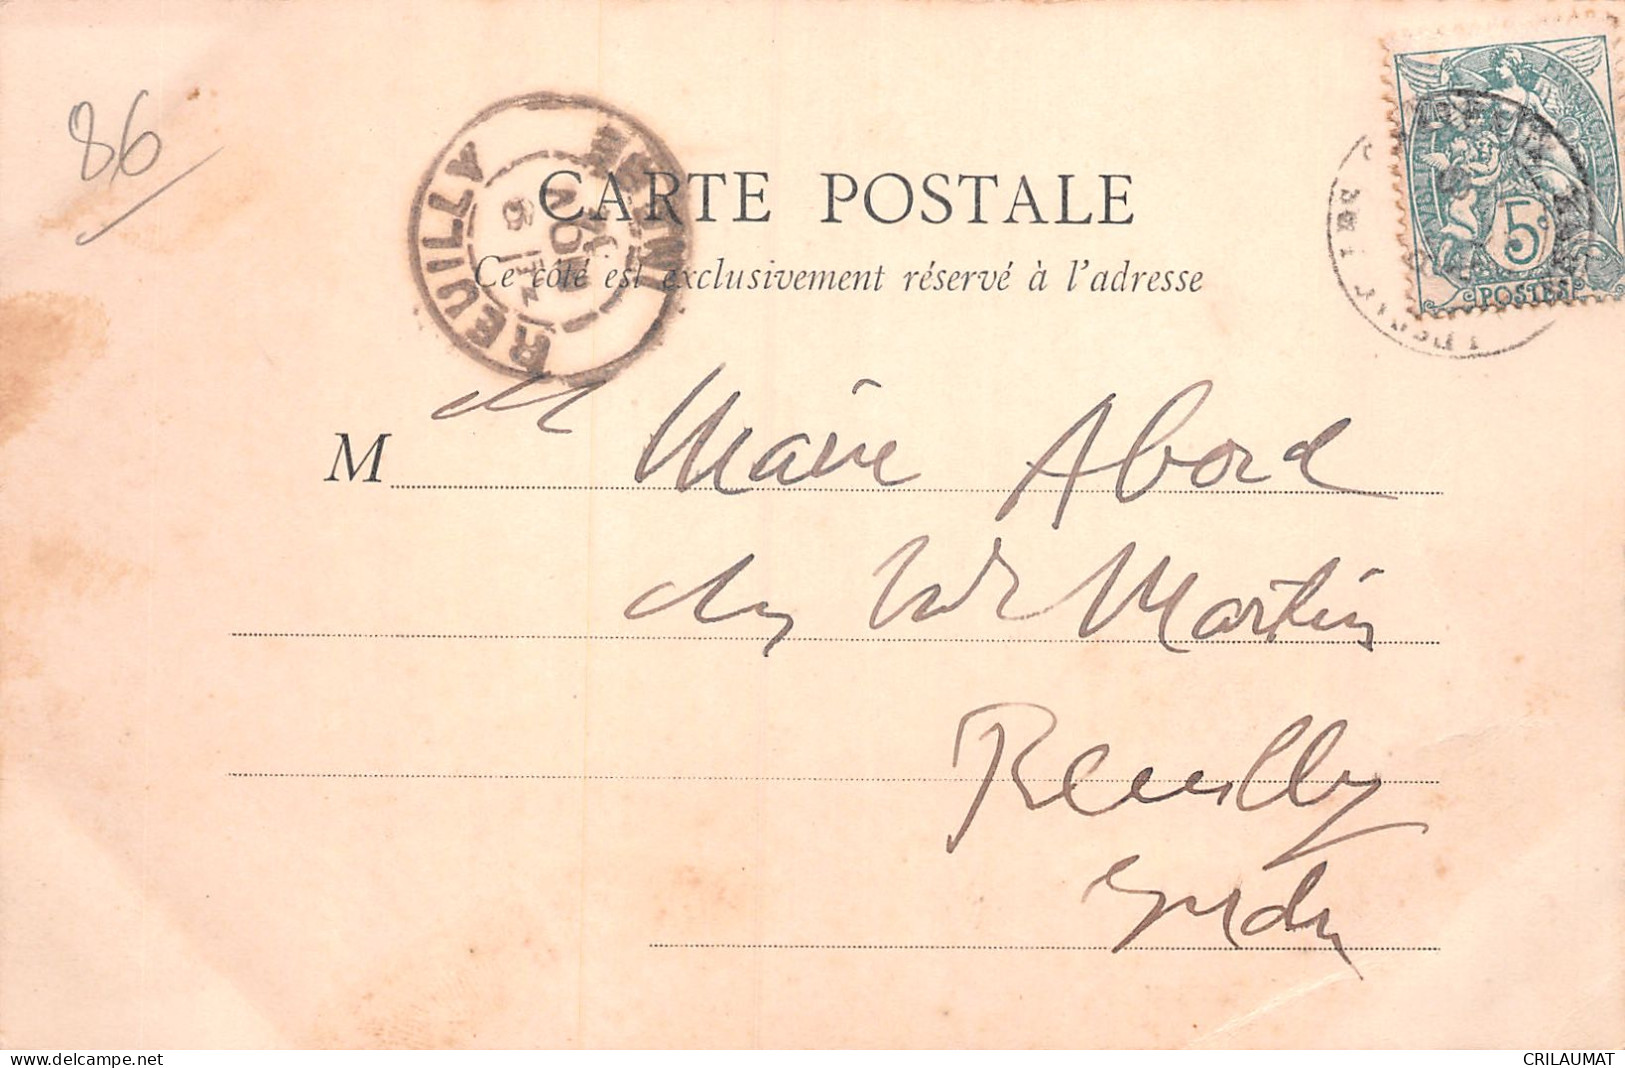 86
REUILLY
INDRE
CARTE POSTALE
Ce côté est exclusivement réservé à l'adresse
5c
POSTES
M lle Marie Abord
chez Mr Martin
Reuilly
Indre
delcampe.net
CRILAUMAT